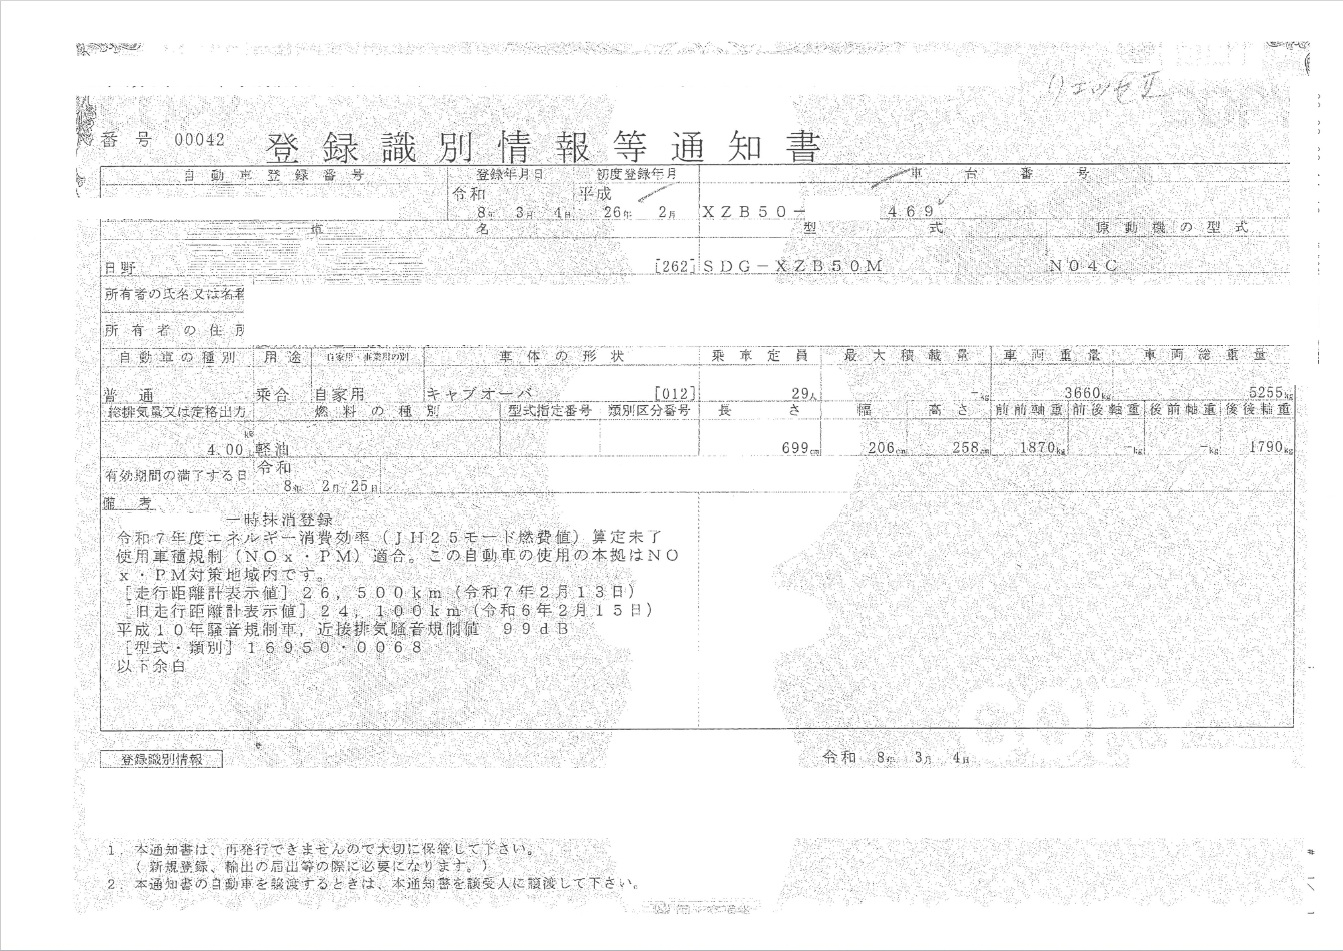 リエッセⅡ
番号 00042 登録識別情報等通知書
自動車登録番号 登録年月日 初度登録年月 車台番号
令和 平成
8年 3月 4日 26年 2月 XZB50- 469
車名 型式 原動機の型式
日野 [262] SDG-XZB50M N04C
所有者の氏名又は名称
所有者の住所
自動車の種別 用途 自家用・事業用の別 車体の形状 乗車定員 最大積載量 車両重量 車両総重量
普通 乗合 自家用 キャブオーバ [012] 29人 -kg 3660kg 5255kg
総排気量又は定格出力 燃料の種別 型式指定番号 類別区分番号 長さ 幅 高さ 前前軸重 前後軸重 後前軸重 後後軸重
kW
4.00 軽油 699cm 206cm 258cm 1870kg -kg -kg 1790kg
有効期間の満了する日 令和
8年 2月 25日
備考
一時抹消登録
令和7年度エネルギー消費効率(JH25モード燃費値)算定未了
使用車種規制(NOx・PM)適合。この自動車の使用の本拠はNO
x・PM対策地域内です。
[走行距離計表示値]26,500km(令和7年2月13日)
[旧走行距離計表示値]24,100km(令和6年2月15日)
平成10年騒音規制車,近接排気騒音規制値 99dB
[型式・類別]16950・0068
以下余白
COPY
登録識別情報 令和 8年 3月 4日
1. 本通知書は、再発行できませんので大切に保管して下さい。
(新規登録、輸出の届出等の際に必要になります。)
2. 本通知書の自動車を譲渡するときは、本通知書を譲受人に譲渡して下さい。